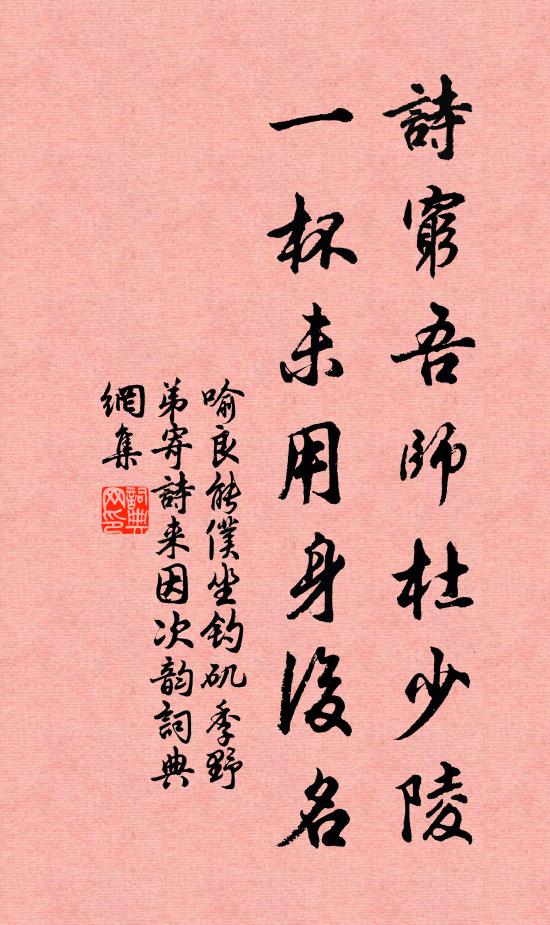 詩窮吾師杜少陵
一杯未用身後名
喻良能僕坐釣矶季野
弟寄詩来因次韵詞典
網集
詞典
网印